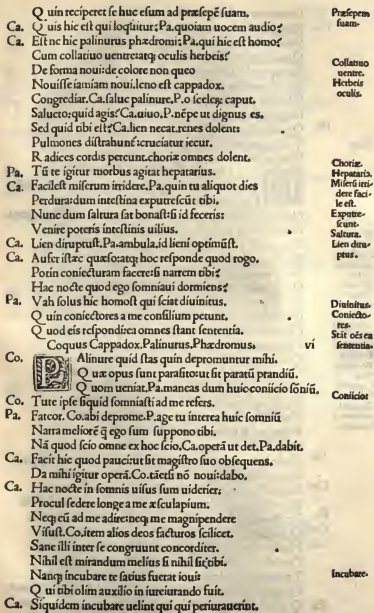 Q uin reciperet se huc esum ad præsepē suam.
Ca. Q uis hic est qui loq̄tur? Pa. quoiam uocem audio?
Ca. Est ne hic palinurus phædromi? Pa. qui hic est homo?
Cum collatiuo uentre atq; oculis herbeis?
De forma noui: de colore non queo
Nouisse iamiam noui. leno est cappadox.
Congrediar. Ca. salue palinure. P. o sceleȝ caput.
Salueto: quid agis? Ca. uiuo. P. nēpe ut dignus es.
Sed quid tibi est? Ca. lien necat. renes dolent:
Pulmones distrahunt: cruciatur iecur.
R adices cordis pereunt. choriæ omnes dolent.
Pa. Tū te igitur morbus agitat hepatarius.
Ca. Facilest miserum irridere. Pa. quin tu aliquot dies
Perdura: dum intestina exputrescūt tibi.
Nunc dum salsura sat bonast: si id feceris:
Venire poteris intestinis uilius.
Ca. Lien diruptust. Pa. ambula. id lieni optimūst.
Ca. Aufer istæc quæso: atq; hoc responde quod rogo.
Potin coniecturam facere: si narrem tibi?
Hac nocte quod ego somniaui dormiens?
Pa. Vah solus hic homost qui sciat diuinitus.
Q uin coniectores a me consilium petunt.
Q uod eis respondi: ea omnes stant sententia.
Coquus Cappadox. Palinurus. Phædromus. vi
Co. P Alinure quid stas quin depromuntur mihi.
Q uæ opus sunt parasito: ut sit paratū prandiū.
Q uom ueniat. Pa. maneas dum huic coniicio sōniū.
Co. Tute ipse siquid somniasti ad me refers.
Pa. Fateor. Co. abi deprome. P. age tu interea huic somniū
Narra meliorē q̄ ego sum suppono tibi.
Nā quod scio omne ex hoc scio. Ca. operā ut det. Pa. dabit.
Ca. Facit hic quod pauci: ut sit magistro suo obsequens.
Da mihi igitur operā. Co. tāetsi nō noui: dabo.
Ca. Hac nocte in somnis uisus sum uiderier:
Procul sedere longe a me æsculapium.
Neq; eū ad me adire: neq; me magnipendere
Visust. Co. item alios deos facturos scilicet.
Sane illi inter se congruunt concorditer.
Nihil est mirandum melius si nihil sit tibi.
Nanq; incubare te satius fuerat ioui:
Q ui tibi olim auxilio in iureiurando fuit.
Ca. Siquidem incubare uelint qui qui periurauerint.
Præsepem
suam.
Collatiuo
uentre.
Herbeis
oculis.
Choriæ.
Hepataris.
Miserū irri-
dere faci-
le est.
Exputre-
scunt.
Salsura.
Lien diru-
ptus.
Diuinitus.
Coniecto-
res.
Stāt oēs ea
sententia.
Coniicio:
Incubare.